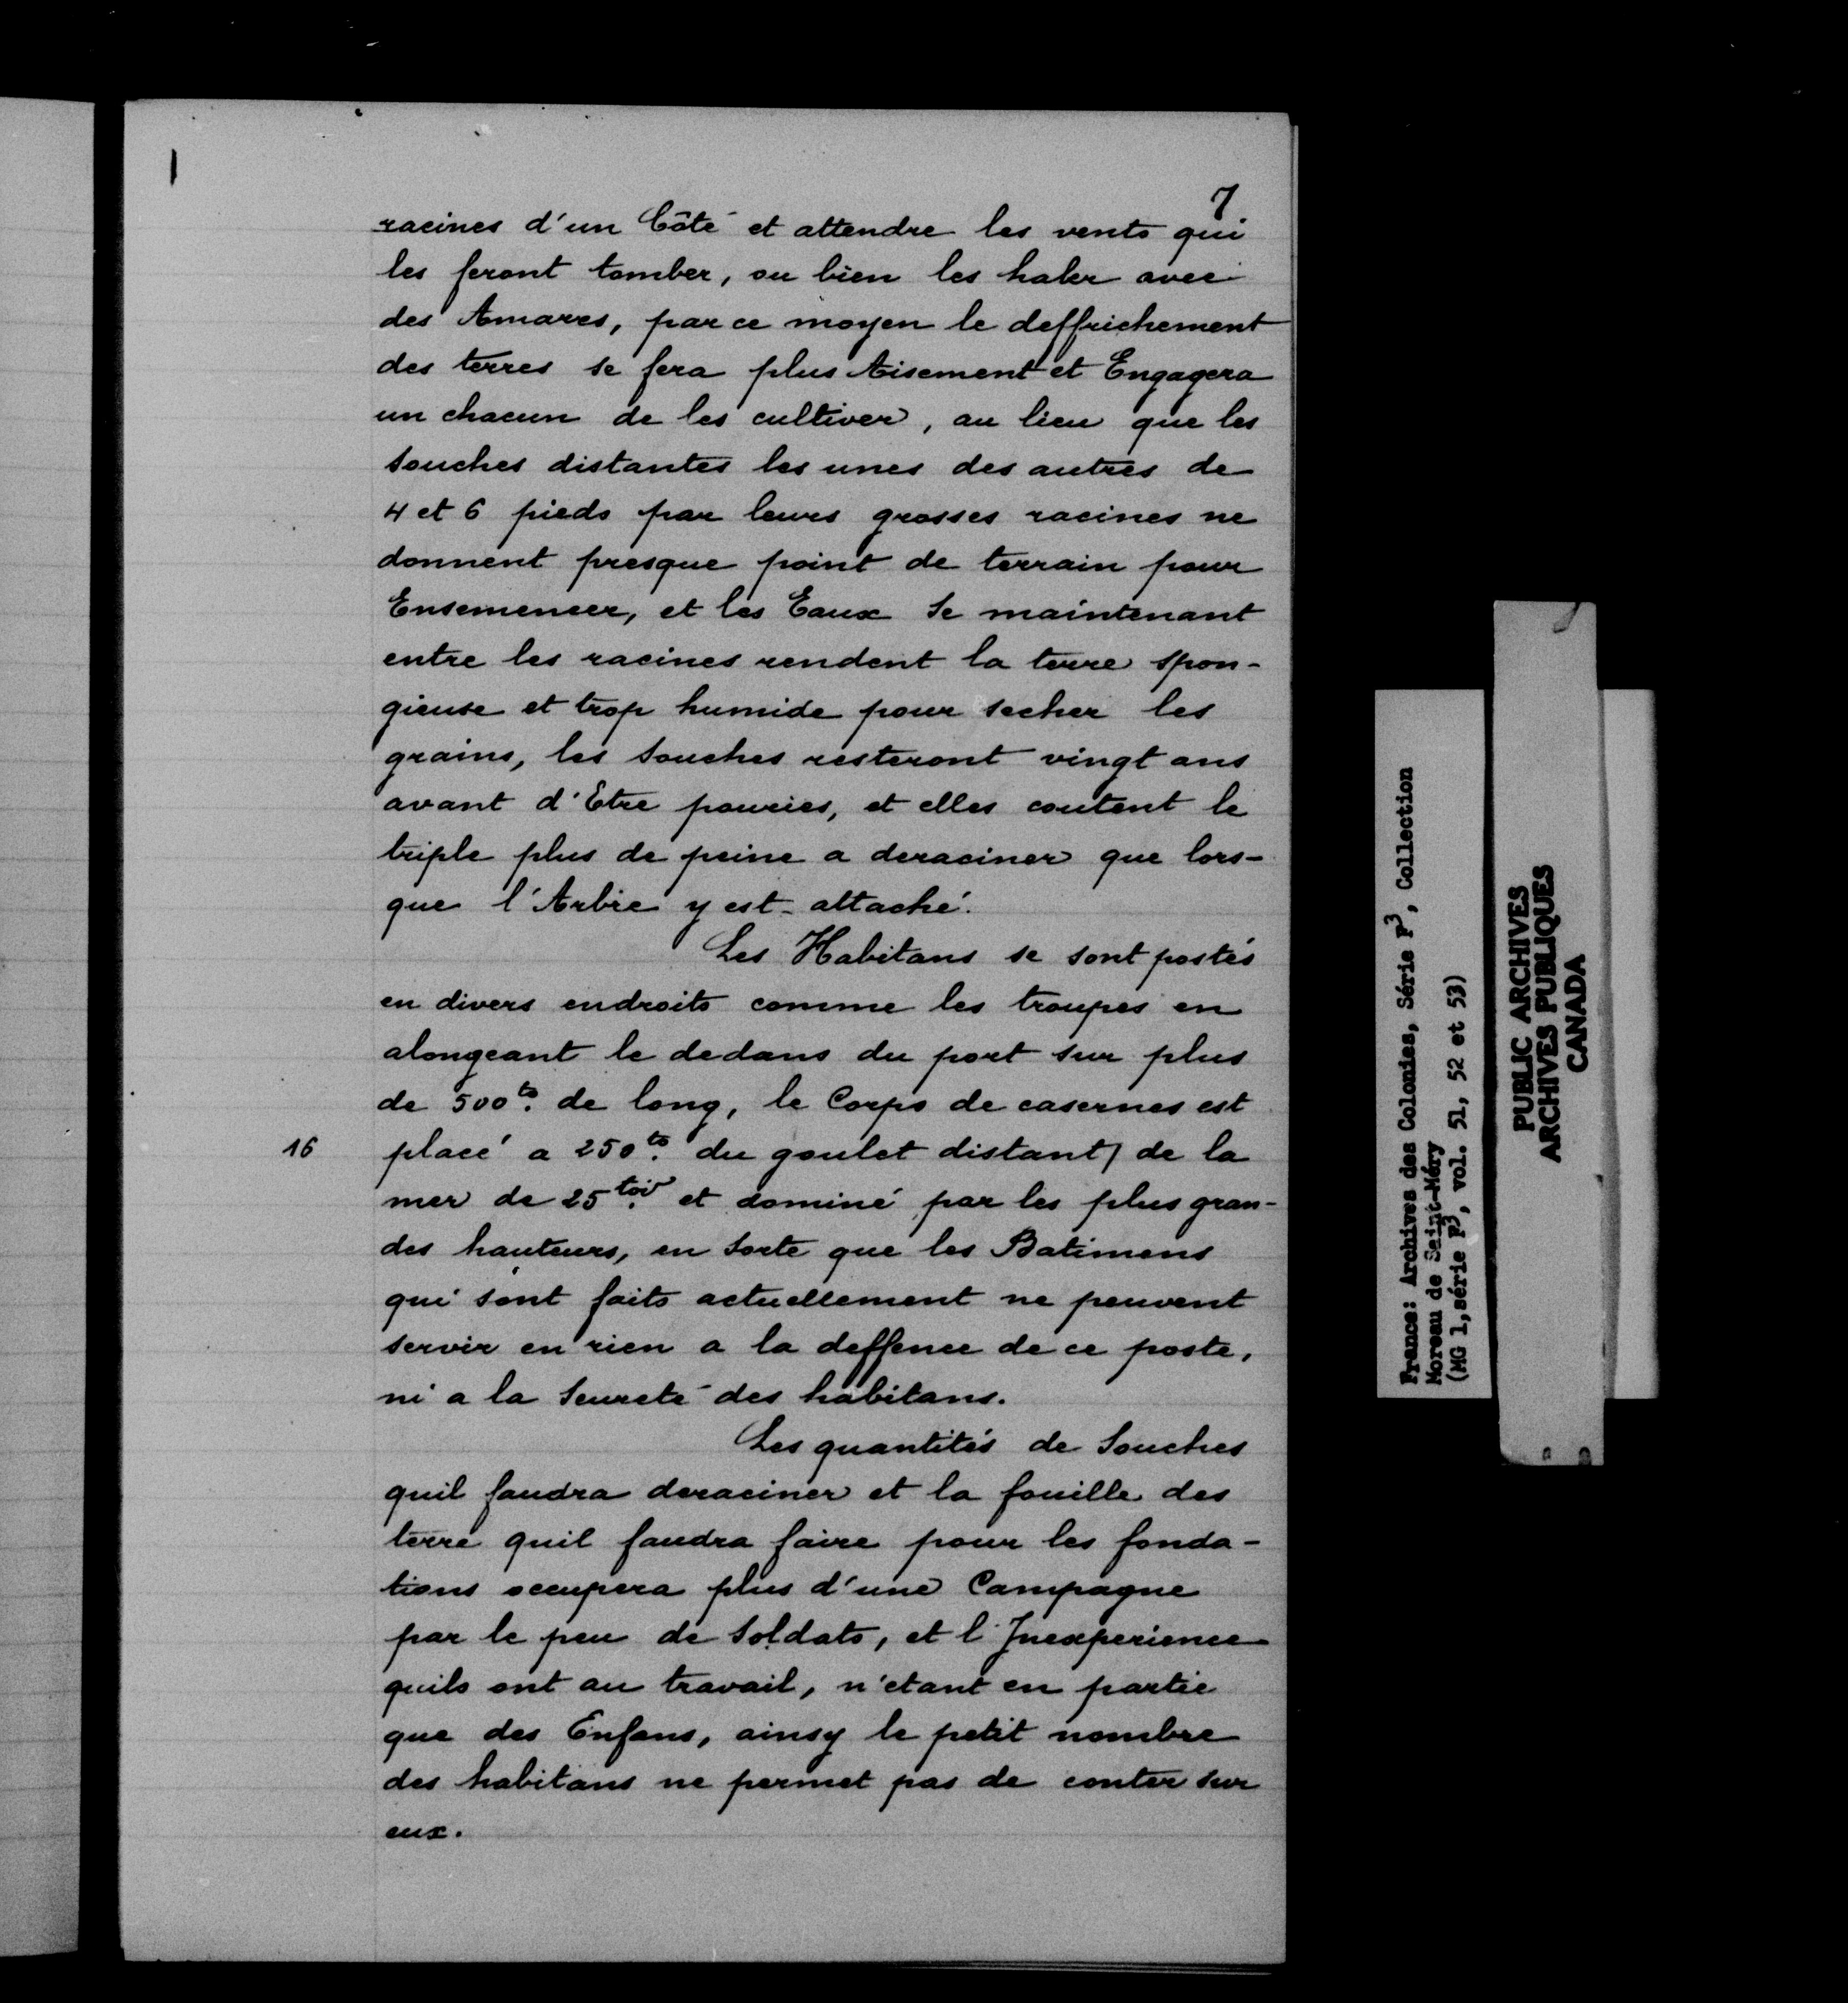 7
racines d'un Côté et attendre les vents qui
les feront tomber, ou bien les haler avec
des Amares, par ce moyen le deffrichement
des terres se fera plus Aisement et Engagera
un chacun de les cultiver, au lieu que les
souches distantes les unes des autres de
4 et 6 pieds par leurs grosses racines ne
donnent presque point de terrain pour
Ensemencer, et les Eaux se maintenant
entre les racines rendent la terre spon-
gieuse et trop humide pour secher les
grains, les souches resteront vingt ans
avant d'Etre pouries, et elles coutent le
triple plus de peine a deraciner que lors-
que l'Arbre y est attaché.
Les Habitans se sont postés
en divers endroits comme les troupes en
alongeant le dedans du port sur plus
de 500ts. de long, le Corps de casernes est
16 placé a 250ts. du goulet distant de la
mer de 25 toi. et dominé par les plus gran-
des hauteurs, en sorte que les Batimens
qui sont faits actuellement ne peuvent
servir en rien a la deffence de ce poste,
ni a la seureté des habitans.
Les quantités de souches
quil faudra deraciner et la fouille des
terre quil faudra faire pour les fonda-
tions occupera plus d'une Campagne
par le peu de soldats, et l'Inexperience
quils ont au travail, n'etant en partie
que des Enfans, ainsy le petit nombre
des habitans ne permet pas de conter sur
eux.
France: Archives des Colonies, Série F3, Collection
Moreau de Saint-Méry
(MG 1, série F3, vol. 51, 52 et 53)
PUBLIC ARCHIVES
ARCHIVES PUBLIQUES
CANADA